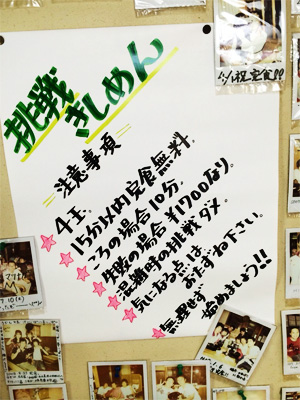 挑戦
きしめん
注意事項
☆4玉。
☆15分以内完食無料
☆ころの場合10分。
☆失敗の場合¥1700なり。
☆混雑時の挑戦ダメ。
☆気になる点は、
おたずね下さい。
☆無理せず
始めましょう!!
祝完食!!